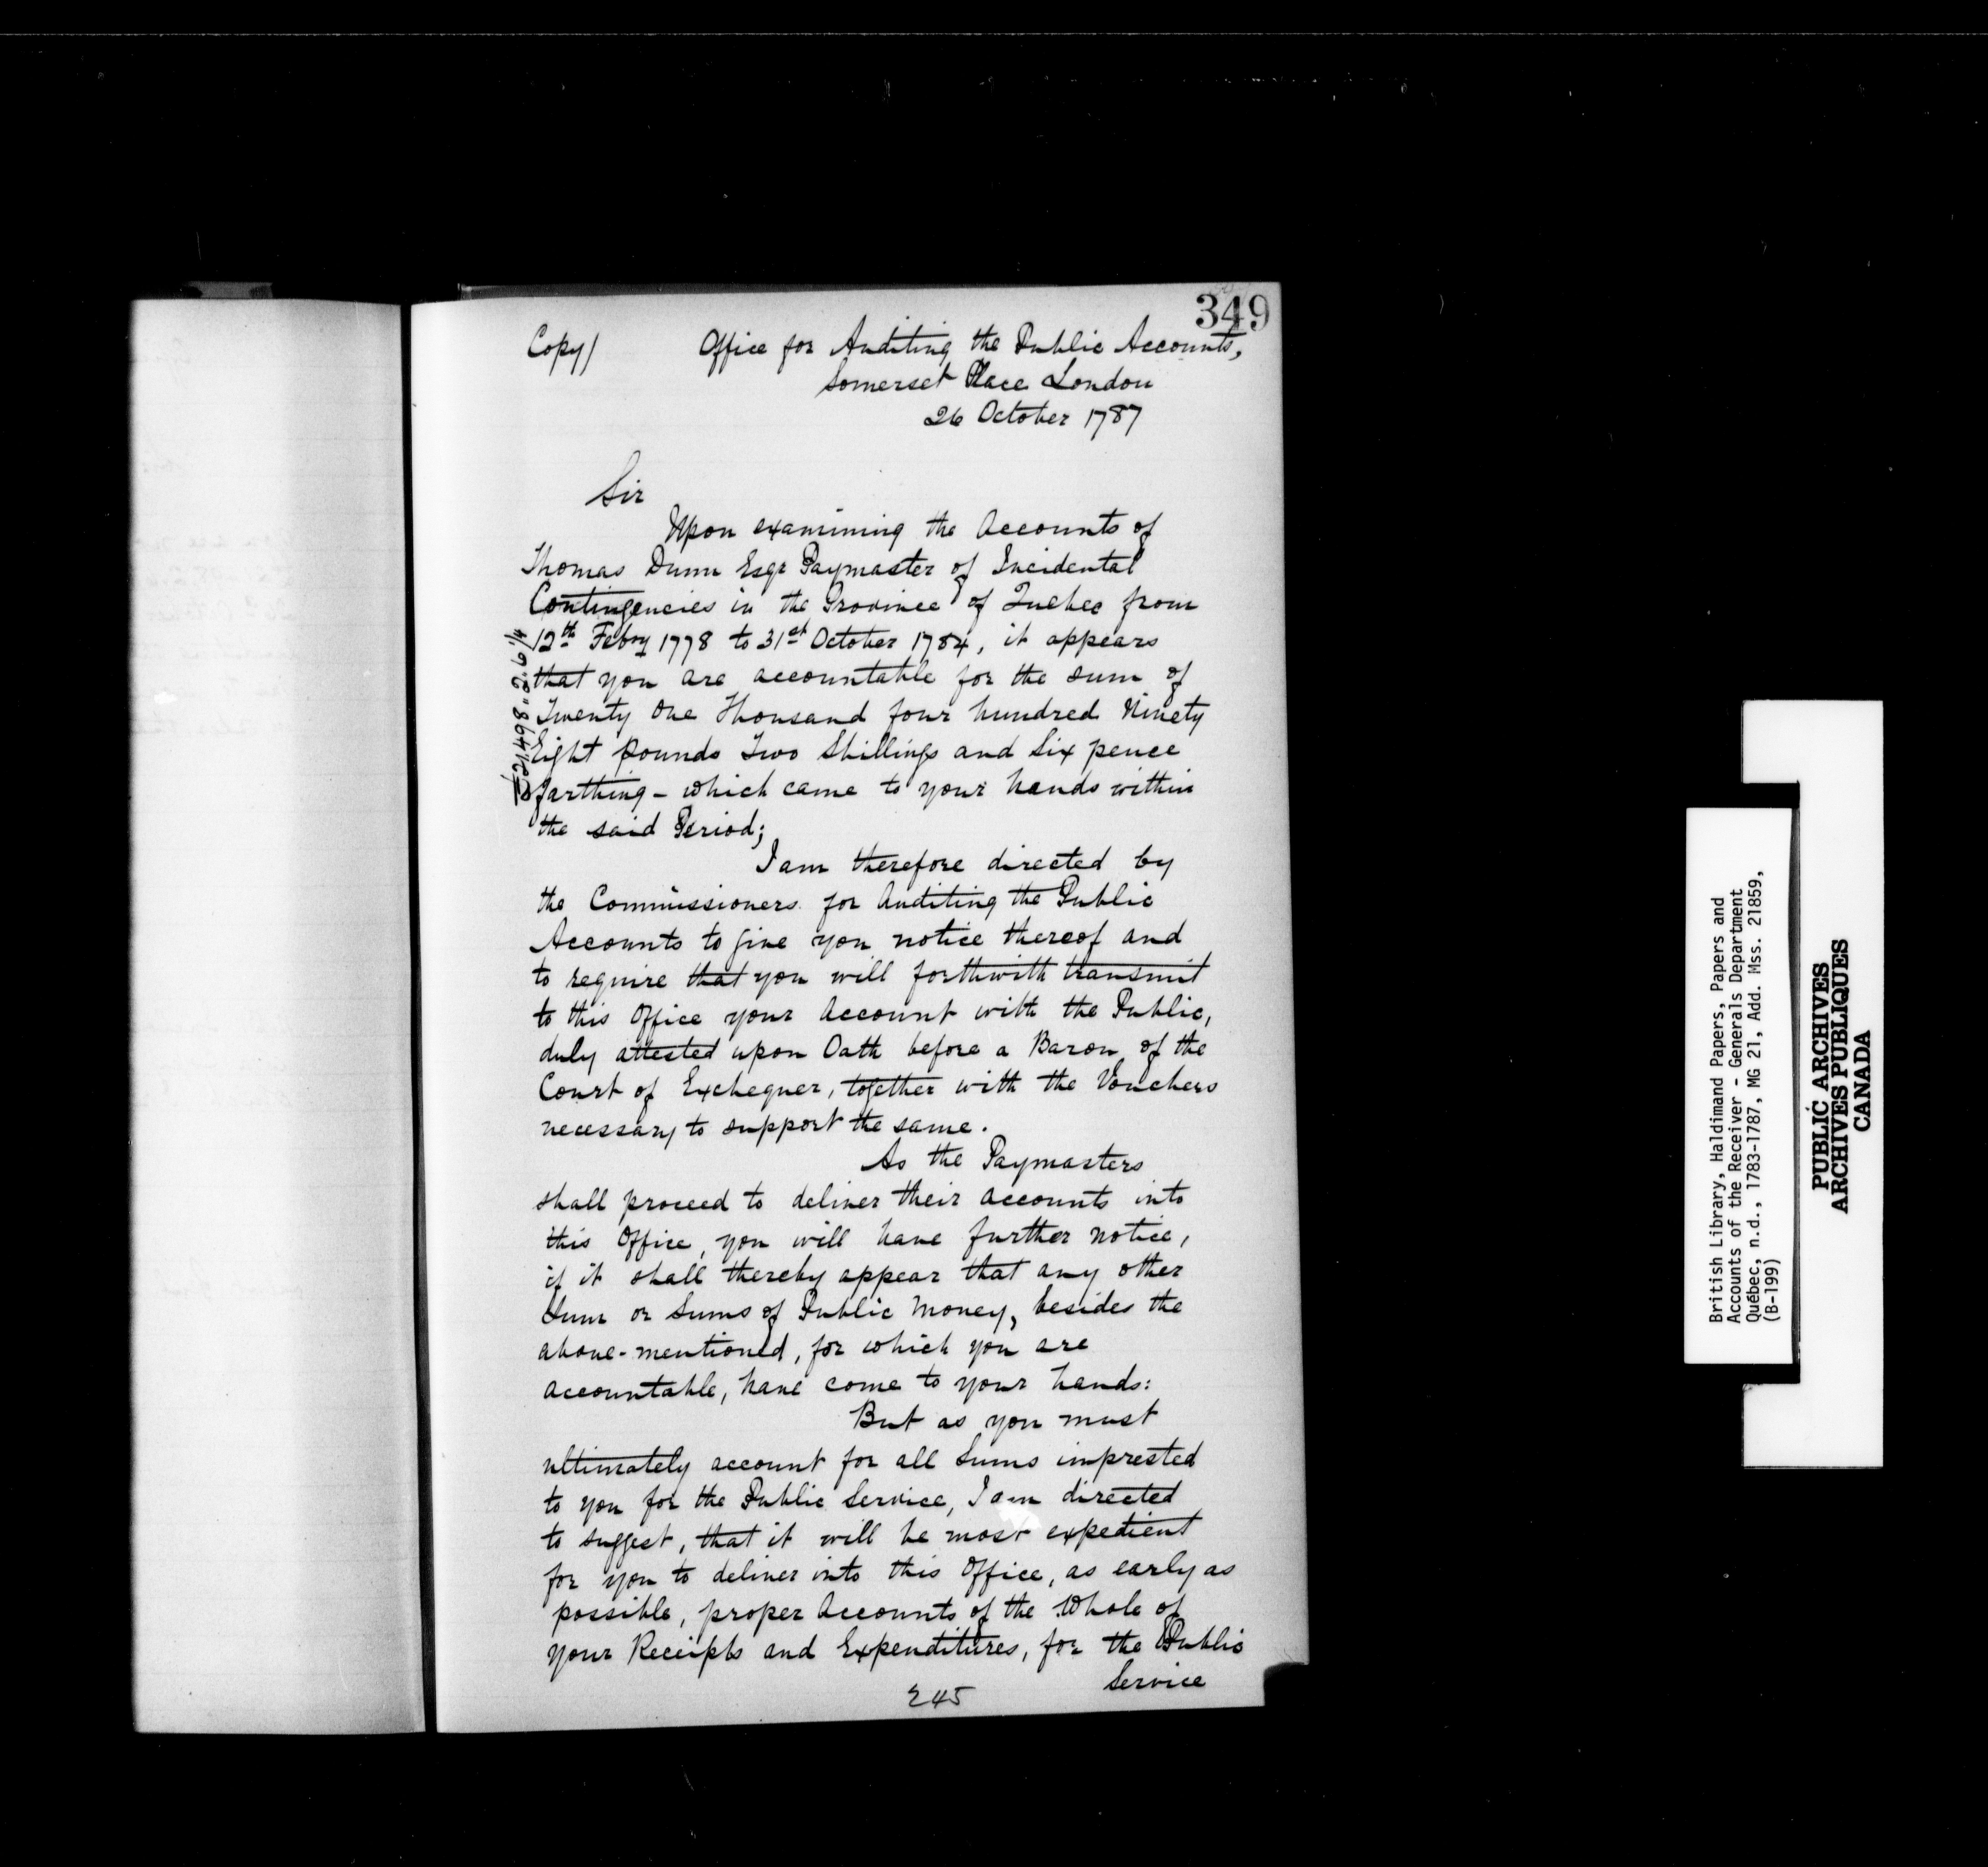 349
Copy/ Office for Auditing the Public Accounts,
Somerset Place London
26 October 1787
Sir
Upon examining the Accounts of
Thomas Dunn Esqr Paymaster of Incidental
Contingencies in the Province of Quebec from
12th Febry 1778 to 31st October 1784, it appears
that you are accountable for the sum of
Twenty One Thousand four hundred Ninety
Eight pounds Two Shillings and Six pence
farthing - which came to your hands within
the said Period;
£21,498"2.6¼
I am therefore directed by
the Commissioners for Auditing the Public
Accounts to give you notice thereof and
to require that you will forthwith transmit
to this Office your Account with the Public,
duly attested upon Oath before a Baron of the
Court of Exchequer, together with the Vouchers
necessary to support the same.
As the Paymasters
shall proceed to deliver their accounts into
this Office, you will have further notice,
if it shall thereby appear that any other
Sum or Sums of Public Money, besides the
above-mentioned, for which you are
accountable, have come to your hands:
But as you must
ultimately account for all Sums imprested
to you for the Public Service, I am directed
to suggest, that it will be most expedient
for you to deliver into this Office, as early as
possible, proper Accounts of the Whole of
your Receipts and Expenditures, for the Public
Service
245
British Library, Haldimand Papers, Papers and
Accounts of the Receiver - Generals Department
Québec, n.d., 1783-1787, MG 21, Add. Mss. 21859,
(B-199)
PUBLIC ARCHIVES
ARCHIVES PUBLIQUES
CANADA